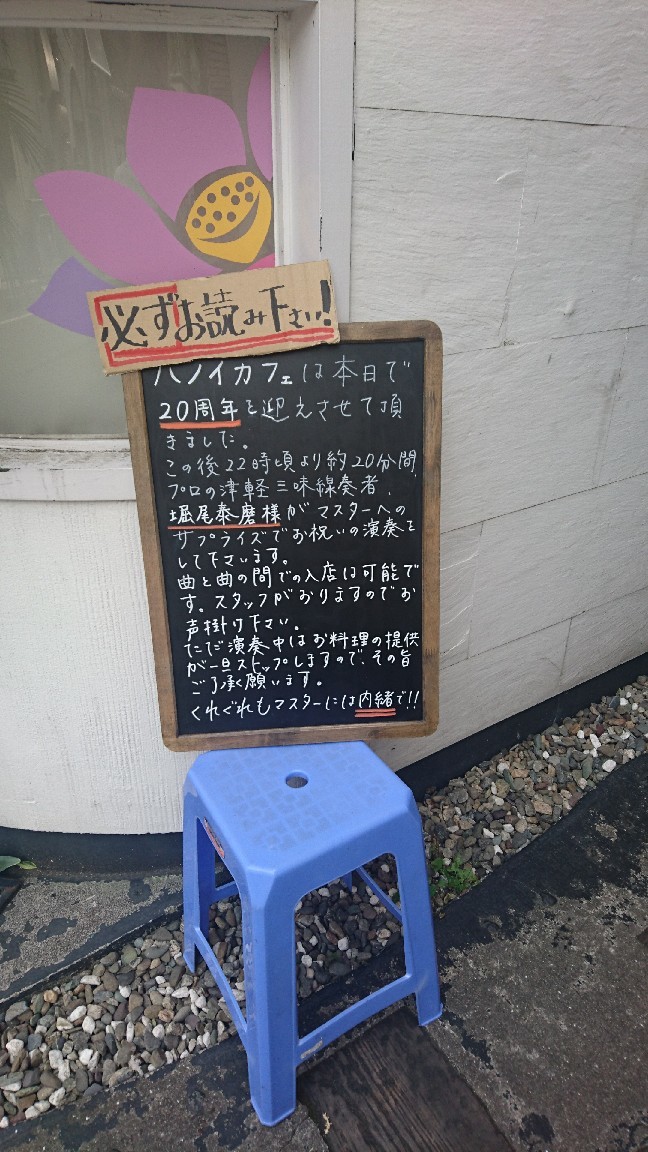 必ずお読み下さい!
ハノイカフェは本日で
20周年を迎えさせて頂
きました。
この後22時頃より約20分間、
プロの津軽三味線奏者、
堀尾泰磨様がマスターへの
サプライズでお祝いの演奏を
して下さいます。
曲と曲の間での入店は可能で
す。スタッフがおりますのでお
声掛け下さい。
ただ演奏中はお料理の提供
が一旦ストップしますので、その旨
ご了承願います。
くれぐれもマスターには内緒で!!